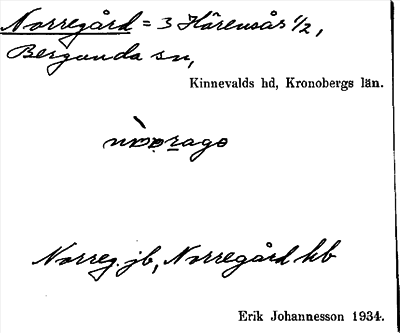 Norregård = 3 Härensås 1/2,
Bergunda sn,
Kinnevalds hd, Kronobergs län.
Norreg. jb, Norregård hb
Erik Johannesson 1934.